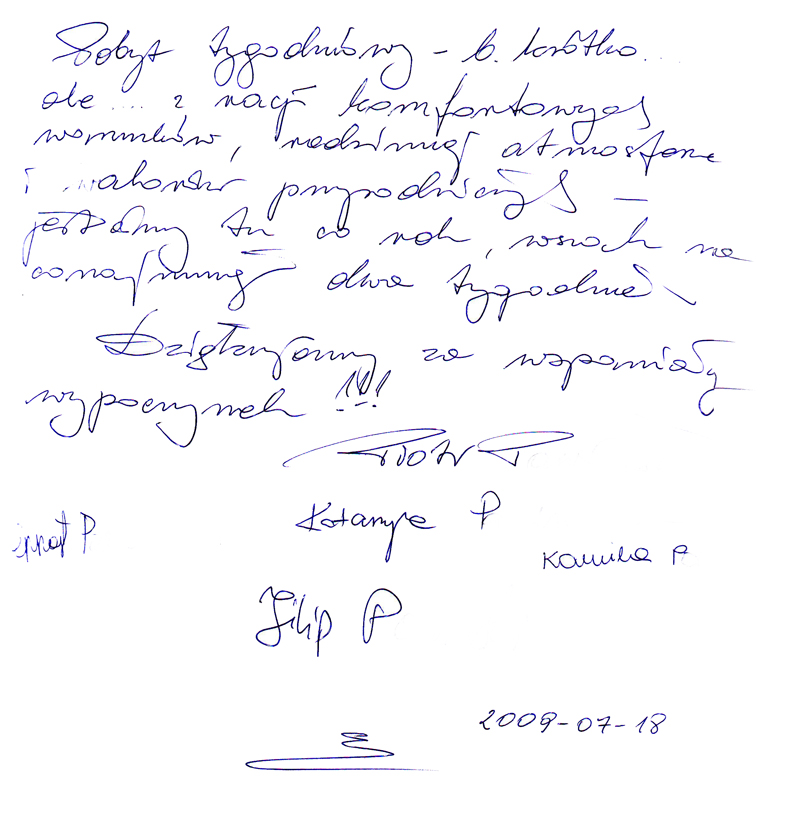 Pobyt tygodniowy - b. krótko...
ale .... z racji komfortowych
warunków, rodzinnej atmosfery
i walorów przyrodniczych –
jesteśmy tu co rok, wszak na
conajmniej dwa tygodnie
Dziękujemy za wspaniały
wypoczynek !!!
Piotr P
Katarzyna P
P.
Kamila P
Filip P
2009-07-18